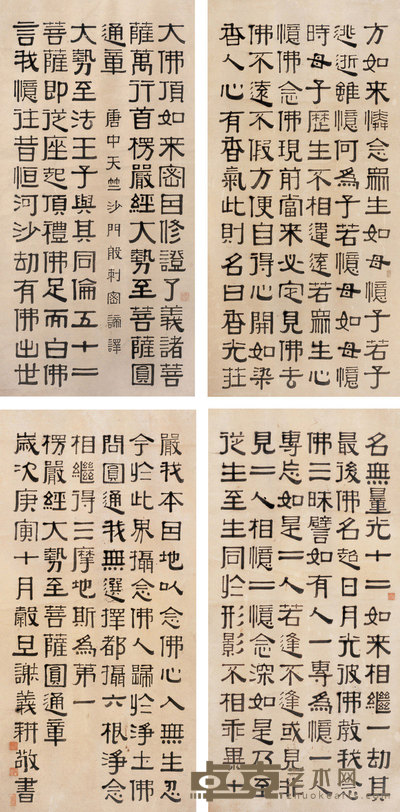 大佛頂如來密因修證了義諸菩
薩萬行首楞嚴經大勢至菩薩圓
通章
唐中天竺沙門般剌密諦譯
大勢至法王子與其同倫五十二
菩薩即從座起頂禮佛足而白佛
言我憶往昔恒河沙劫有佛出世
名無量光十二如來相繼一劫其
最後佛名超日月光彼佛教我念
佛三昧譬如有人一專為憶一人
專忘如是二人若逢不逢或見非
見二人相憶二憶念深如是乃至
從生至生同於形影不相乖異十
方如來憐念眾生如母憶子若子
逃逝雖憶何為子若憶母如母憶
時母子歷生不相違遠若眾生心
憶佛念佛現前當來必定見佛去
佛不遠不假方便自得心開如染
香人心有香氣此則名曰香光莊
嚴我本因地以念佛心入無生忍
今於此界攝念佛人歸於淨土佛
問圓通我無選擇都攝六根淨念
相繼得三摩地斯為第一
楞嚴經大勢至菩薩圓通章
歲次庚寅十月穀旦謝義耕敬書
艺术网